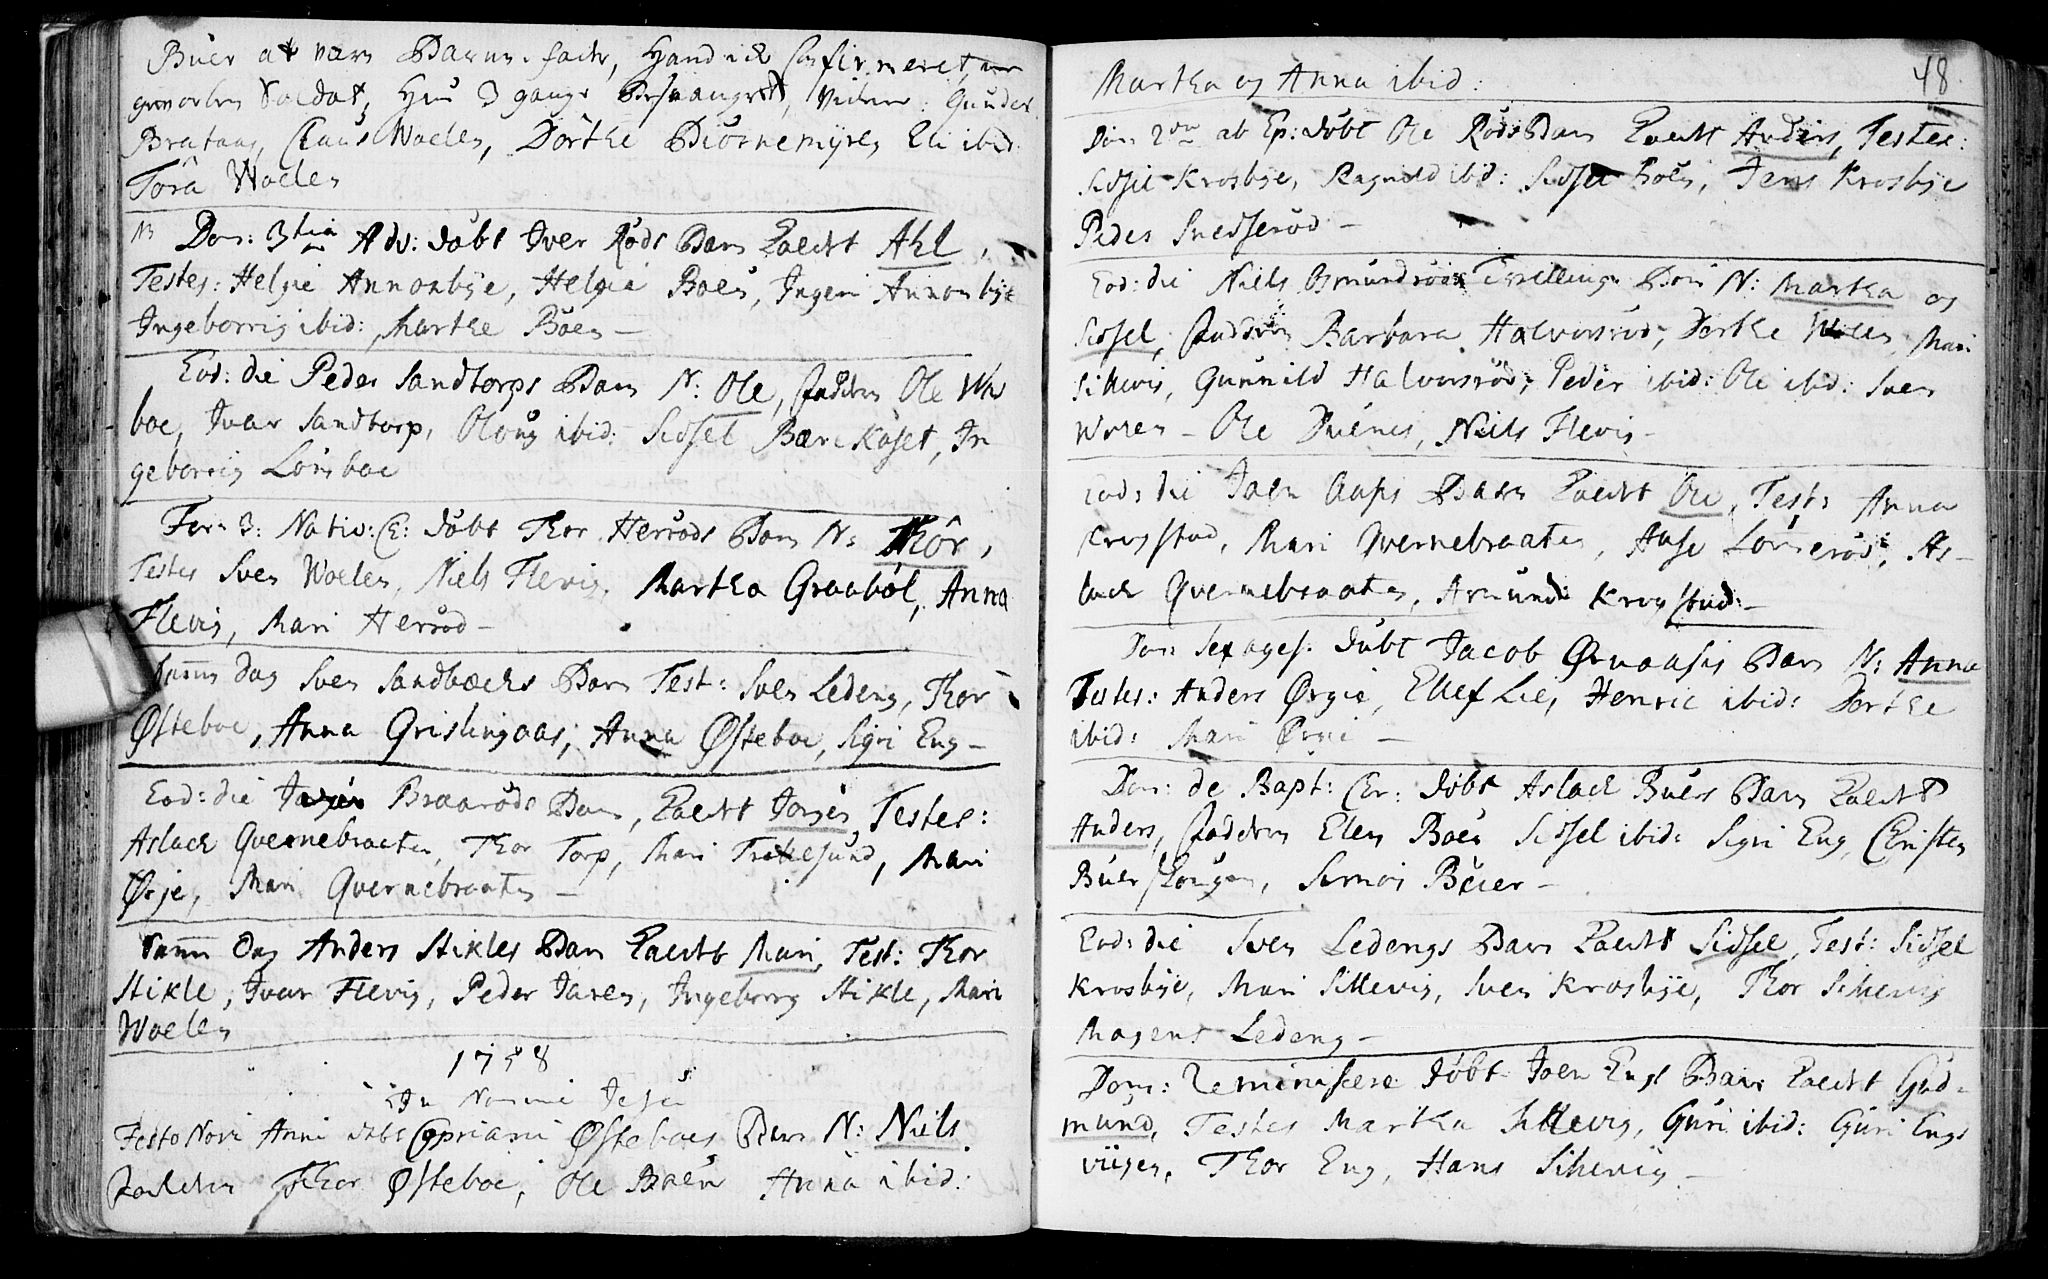 Buer at være Barne fader, Hand ick Confirmeret, en
gevorben Soldat, Hun 3 gange Besvangret, Vidner: Gunder
Brataas, Claus Woelen, Dorthe Biørnemyren Eli ibid:
Tora Woelen
NB Dom: 3tia Adv: døbt Iver Røds Barn kaldet Ahl,
Testes: Helgie Annonbye, Helgie Boen, Ingen Annonbye
Ingeborrig ibid: Marthe Boen –
Eod: die Peder Sandtorps Barn N: Ole, Faddere Ole
boe, Ivar Sandtorp, Oloug ibid: Sidsel Bærekaset, In
geborrig Lonsboe
Fer: 3: Nativ: C: døbt Thor Herrøds Barn N: Thor,
Testes Sven Woelen, Niels Flevig, Martha Graabøl, Anna
Flevig, Mari Herrød –
Samme dag Sven Sandbæcks Barn Test: Sven Ledeng, Thor
Østeboe, Anna Grislingaas, Anna Østeboe, Sigri Eng –
Eod: die Jørgen Braarøds Barn, kaldet Jørgen, Testes:
Aslach Qvernebraaten, Thor Torp, Mari Trolesund, Mari
Ørje, Mari Qvernebraaten –
Samme Dag Anders Stikles Barn kaldet Mari, Test: Thor
Stikle, Ivar Flevig, Peder Jaren, Ingeborrg Stikle, Mari
Woelen
1758
In Nomine Jesu
Festo Novi Anni døbt Cypriani Østeboes Barn N: Niels
Faddere Thor Østeboe, Ole Boen Anna ibid:
48
Martha og Anna ibid:
Dom 2da ab Ep: døbt Ole Røds Barn kaldet Anders, Testes:
Sidsel Krosbye, Ragnild ibid: Sidsel Boen, Jens Krosbye
Peder Snesserød –
Eod: die Niels Osmundrøds Tvillinge Børn N: Martha og
Sidsel, Faddere Barbara Halvorsrød, Dorthe Wolen, Mari
Sillevig, Gunnild Halvorsrød, Peder ibid: Ole ibid: Sven
Wolen – Ole Duenes, Niels Flevig –
Eod: die Joen Aaps Barn kaldet Ole, Test: Anna
Krogstad, Mari Qvernebraaten, Aase Lonnerød, As-
lach Qvernebraaten, Amundi Krogstad –
Dom Sexages: døbt Jacob Ørnaasis Barn N: Anna
Testes: Anders Ørgie, Ellef Lie, Henric ibid: Dorthe
ibid: Mari Ørgie –
Dom: de Bapt: Chr: døbt Aslach Buers Barn kaldet
Anders, Faddere Elen Boen Sidsel ibid: Sigri Eng, Christen
Buer Skougen, Simon Buer –
Eod: die Sven Ledengs Barn kaldet Sidsel, Test: Sidsel
Krosbye, Mari Sillevig, Sven Krosbye, Thor Sillevig
Mogens Ledeng –
Dom: Reminiscere døbt Joen Engs Barn kaldet Gud-
mund, Testes Martha Sillevig, Guri ibid: Guri Engs
viigen, Thor Eng, Hans Sillevig –